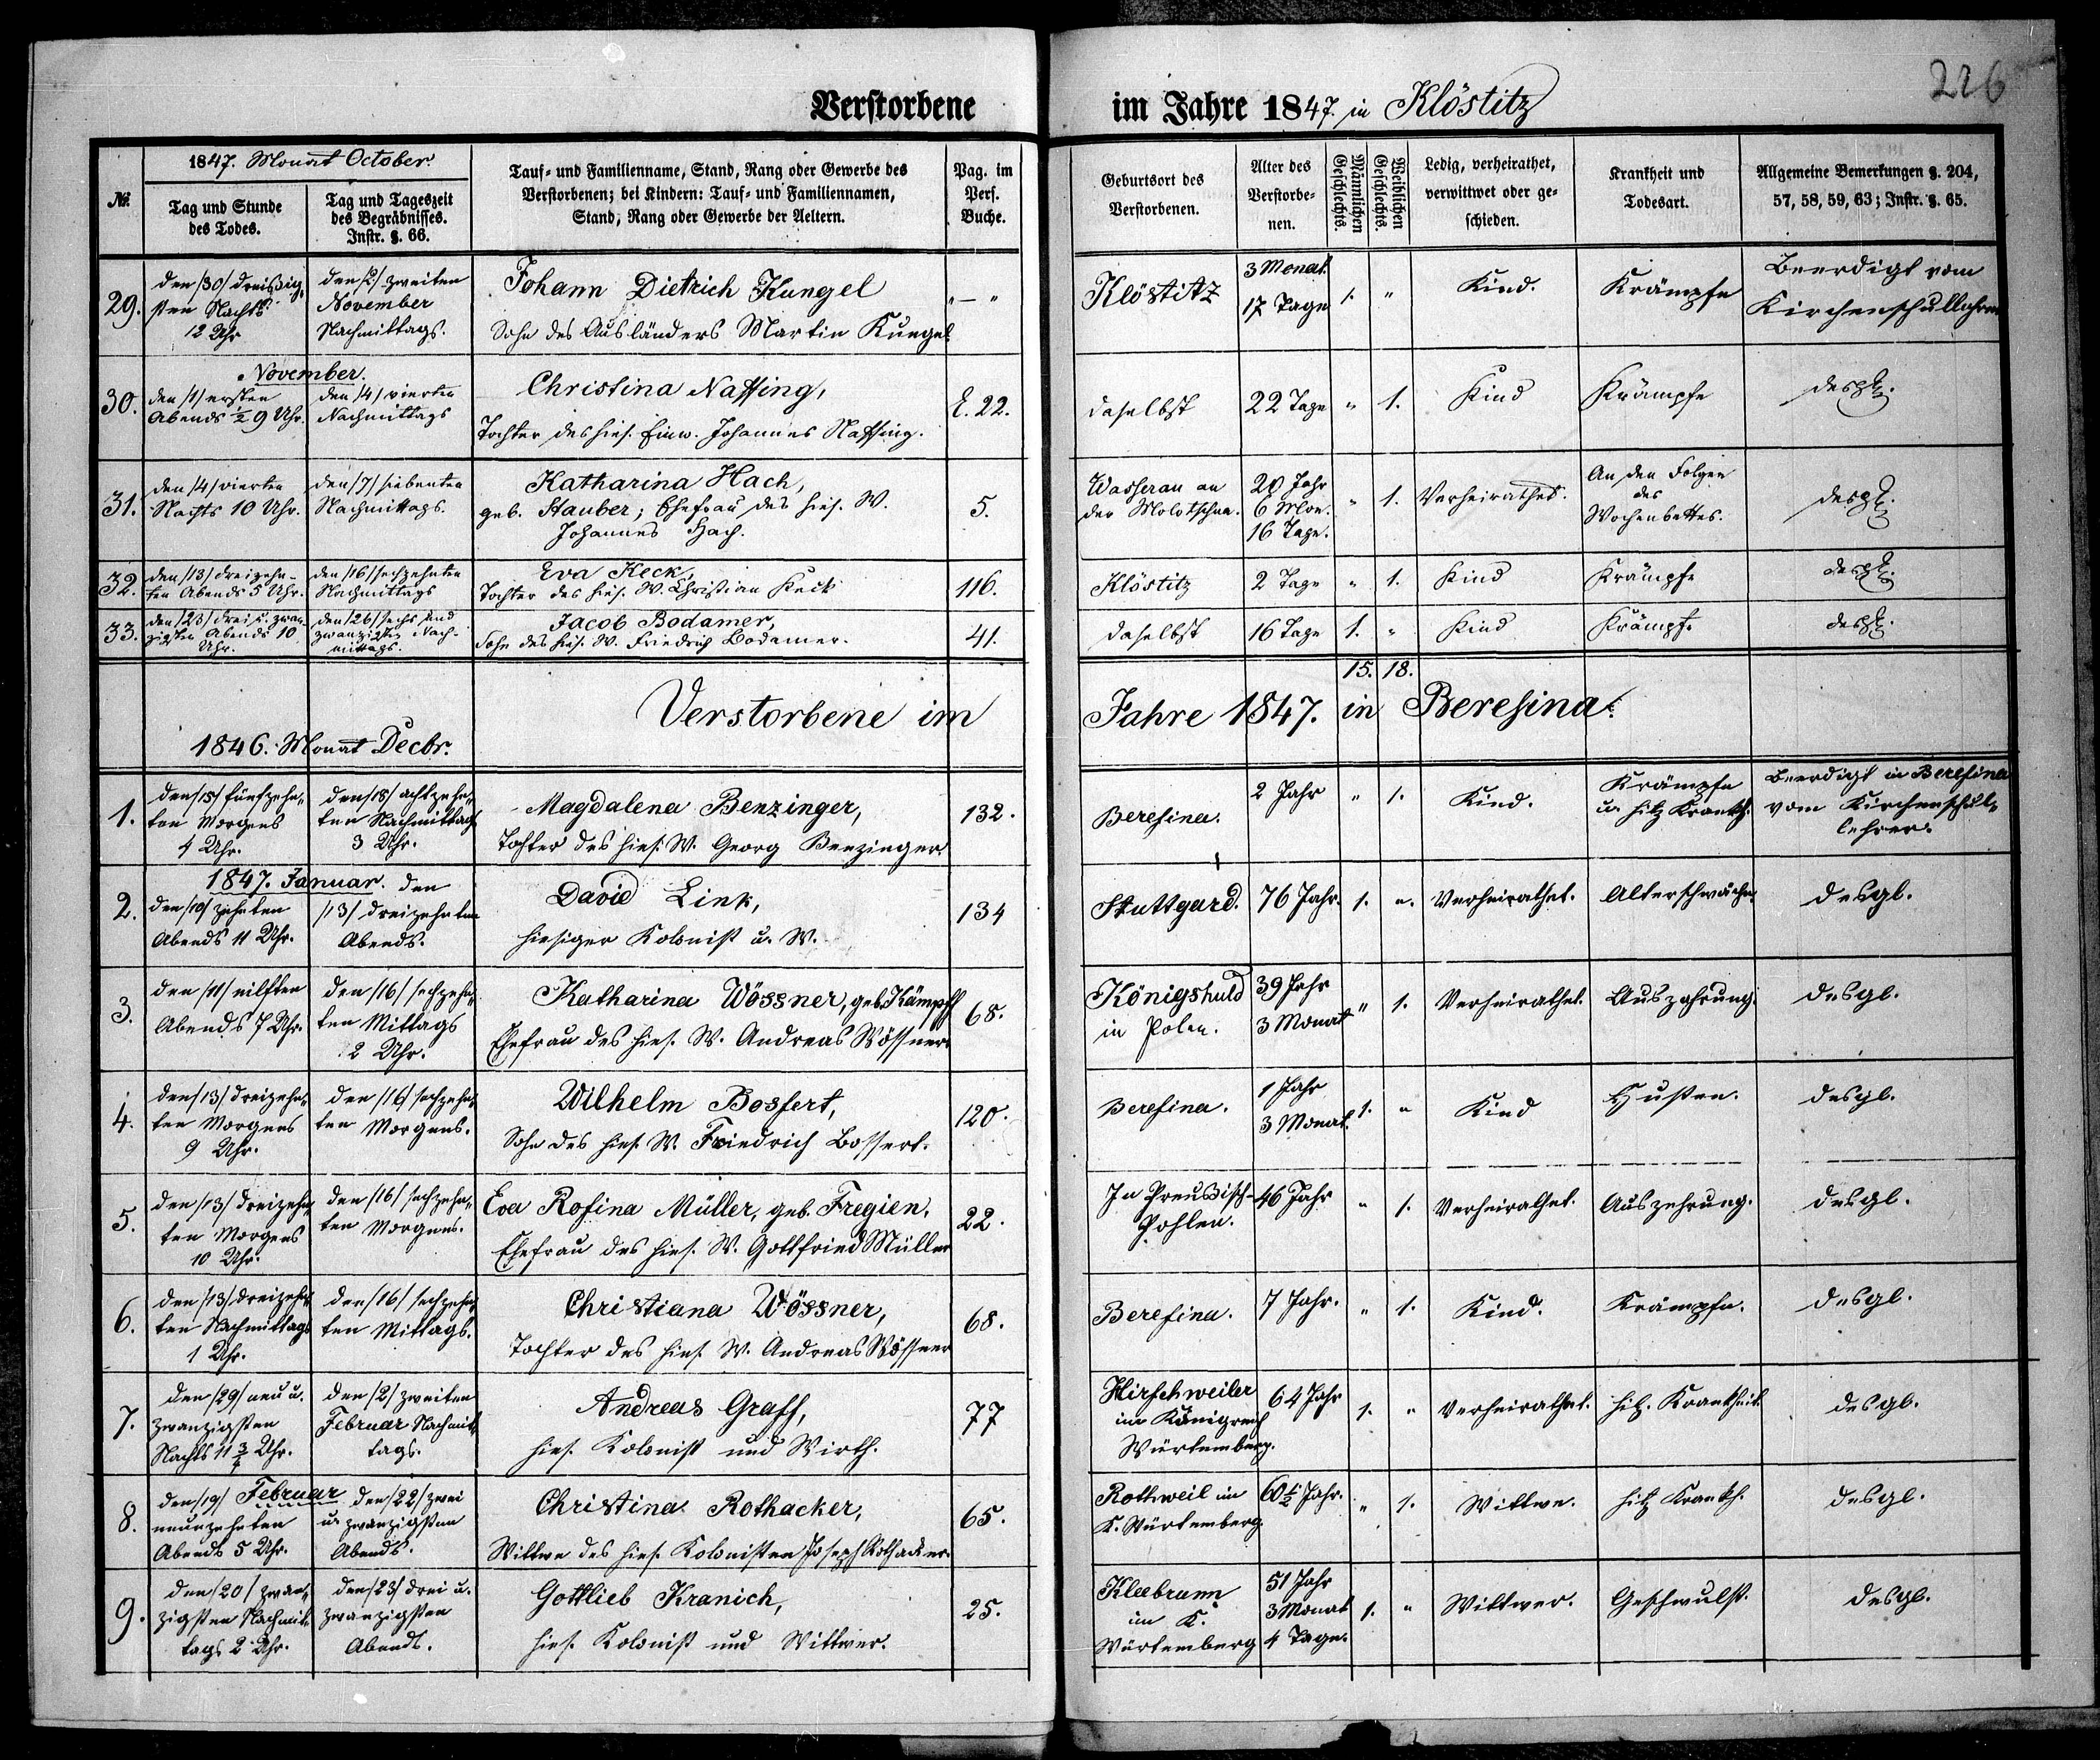 226
Verstorbene im Jahre 1847. in Klöstitz
No.
1847. Monat October.
Tag und Stunde
des Todes.
Tag und Tageszeit
des Begräbnisses.
Instr. §. 66.
Tauf- und Familienname, Stand, Rang oder Gewerbe des
Verstorbenen; bei Kindern: Tauf- und Familiennamen,
Stand, Rang oder Gewerbe der Aeltern.
Pag. im
Pers.
Buche.
Geburtsort des
Verstorbenen.
Alter des
Verstorbe-
nen.
Männlichen
Geschlechts.
Weiblichen
Geschlechts.
Ledig, verheirathet,
verwittwet oder ge-
schieden.
Krankheit und
Todesart.
Allgemeine Bemerkungen §. 204,
57, 58, 59, 63; Instr. §. 65.
29.
den /30/ dreißig-
sten Nachts
12 Uhr
den /2/ zweiten
November
Nachmittags.
Johann Dietrich Kungel
Sohn des Ausländers Martin Kungel
„—„
Klöstitz
3 Monat
17 Tage
1.
„
Kind.
Krämpfe
Beerdigt vom
Kirchenschullehrer
November.
30.
den /1/ ersten
Abends ½ 9 Uhr.
den /4/ vierten
Nachmittags
Christina Nassing,
Tochter des hies. Einw. Johannes Nassing.
E. 22.
daselbst
22 Tage
„
1.
Kind
Krämpfe
desgl.
31.
den /4/ vierten
Nachts 10 Uhr.
den /7/ siebenten
Nachmittags.
Katharina Hach,
geb. Stauber; Ehefrau des hies. W.
Johannes Hach.
5.
Wasserau an
der Molotschna.
20 Jahr
6 Mon.
16 Tage.
„
1.
Verheirathet.
An den Folgen
des
Wochenbettes.
desgl.
32.
den /13/ dreizehn-
ten Abends 5 Uhr.
den /16/ sechzehnten
Nachmittags
Eva Keck,
Tochter des hies. W. Christian Keck
116.
Klöstitz
2 Tage
„
1.
Kind
Krämpfe
desgl.
33.
den /23/ drei u. zwan-
zigsten Abends 10
Uhr.
den /26/ sechs und
zwanzigsten Nach-
mittags.
Jacob Bodamer,
Sohn des hies. W. Friedrich Bodamer.
41.
daselbst
16 Tage
1.
„
Kind
Krämpfe
desgl.
15. 18.
Verstorbene im Jahre 1847. in Beresina.
1846. Monat Decbr.
1.
den /15/ fünfzehn-
ten Morgens
4 Uhr.
den /18/ achtzehn-
ten Nachmittags
3 Uhr.
Magdalena Benzinger,
Tochter des hies. W. Georg Benzinger.
132.
Beresina.
2 Jahr
„
1.
Kind.
Krämpfe
u. hitz Krankh.
Beerdigt in Beresina
vom Kirchenschul-
lehrer.
1847. Januar.
2.
den /10/ zehnten
Abends 11 Uhr.
den
/13/ dreizehnten
Abends.
David Link,
hiesiger Kolonist u. W.
134
Stuttgard.
76 Jahr.
1.
„.
Verheirathet.
Alterschwäche.
desgl.
3.
den /11/ eilften
Abends 7 Uhr.
den /16/ sechzehn-
ten Mittags
2 Uhr.
Katharina Wössner, geb. Kämpff
Ehefrau des hies. W. Andreas Wössner.
68.
Königshuld
in Polen.
39 Jahr
3 Monat
„
1.
Verheirathet.
Auszehrung.
desgl.
4.
den /13/ dreizehn-
ten Morgens
9 Uhr.
den /16/ sechzehn-
ten Morgens.
Wilhelm Bossert,
Sohn des hies. W. Friedrich Bossert.
120.
Beresina.
1 Jahr
3 Monat.
1.
„
Kind
Husten.
desgl.
5.
den /13/ dreizehn-
ten Morgens
10 Uhr.
den /16/ sechzehn-
ten Morgens.
Eva Rosina Müller, geb. Fregien.
Ehefrau des hies. W. Gottfried Müller
22.
In Preußisch-
Pohlen.
46 Jahr
„
1.
Verheirathet.
Auszehrung.
desgl.
6.
den /13/ dreizehn-
ten Nachmittags
1 Uhr.
den /16/ sechzehn-
ten Mittags.
Christiana Wössner,
Tochter des hies. W. Andreas Wössner
68.
Beresina.
7 Jahr.
„
1.
Kind.
Krämpfe.
desgl.
7.
den /29/ neu u.
zwanzigsten
Nachts 11 ¾ Uhr.
den /2/ zweiten
Februar Nachmit-
tags.
Andreas Graff,
hies. Kolonist und Wirth.
77
Hirschweiler
im Königreich
Würtemberg.
64 Jahr
1.
„
Verheirathet.
hitz. Krankheit.
desgl.
Februar
8.
den /19/
neunzehnten
Abends 5 Uhr.
den /22/ zwei
u. zwanzigsten
Abends.
Christina Rothacker,
Wittwe des hies. Kolonisten Joseph Rothacker.
65.
Rothweil im
K. Würtemberg.
60½ Jahr.
„
1.
Wittwe.
hitz Krankh.
desgl.
9.
den /20/ zwan-
zigsten Nachmit-
tags 2 Uhr.
den /23/ drei u.
zwanzigsten
Abends.
Gottlieb Kranich,
hies. Kolonist und Wittwer.
25.
Kleebrunn
im K.
Würtemberg
51 Jahr
3 Monat
4 Tage.
1.
„
Wittwer.
Geschwulst.
desgl.